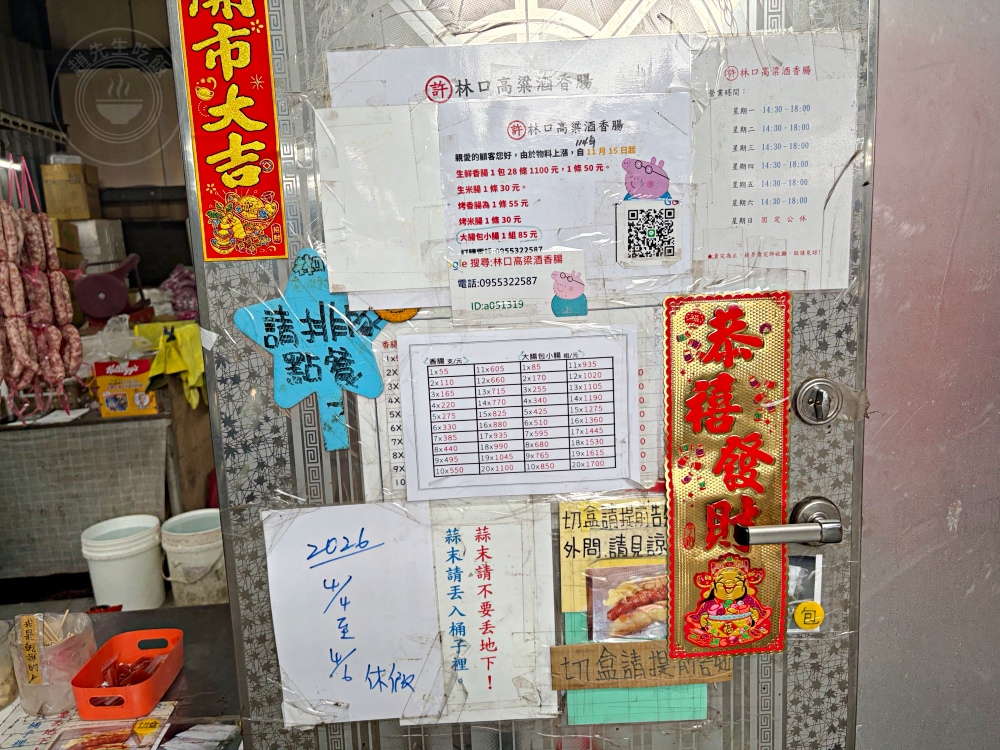 開市大吉
招財
趙先生吃飯
許 林口高粱酒香腸
許 林口高粱酒香腸
114年
親愛的顧客您好，由於物料上漲，自 11 月 15 日起
生鮮香腸 1 包 28 條 1100 元，1 條 50 元。
生米腸 1 條 30 元。
烤香腸為 1 條 55 元
烤米腸 1 條 30 元
大腸包小腸 1 組 85 元
訂購電話:0955322587
le 搜尋:林口高梁酒香腸
電話:0955322587
ID:a051319
許 林口高粱酒香腸
營業時間：
星期一 14:30-18:00
星期二 14:30-18:00
星期三 14:30-18:00
星期四 14:30-18:00
星期五 14:30-18:00
星期六 14:30-18:00
星期日 固定公休
請排
點餐
香腸 支/元 大腸包小腸 組/元
1x55 11x605 1x85 11x935
2x110 12x660 2x170 12x1020
3x165 13x715 3x255 13x1105
4x220 14x770 4x340 14x1190
5x275 15x825 5x425 15x1275
6x330 16x880 6x510 16x1360
7x385 17x935 7x595 17x1445
8x440 18x990 8x680 18x1530
9x495 19x1045 9x765 19x1615
10x550 20x1100 10x850 20x1700
恭禧發財
福
2026
4/4
至
4/6
休假
蒜末請不要丟地下！
蒜末請丟入桶子裡。
切盒請提前告
外問，請見諒
切盒請提前告知
包
Kellogg's